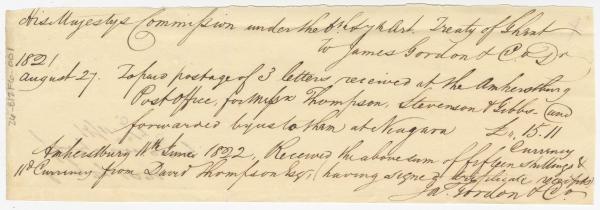 His Majestys Commission under the 6th & 7th Art. Treaty of Ghent
To James Gordon & Co Dr
1821
August 27. To paid postage of 3 letters received at the Amherstburg
Post Office, for Messrs Thompson, Stevenson & Gibbs and
forwarded by us to them at Niagara £ 15.11
Currency
Amherstburg 11th June 1822, Received the above sum of fifteen shillings &
11d Currency from David Thompson Esqr, having signed triplicate receipts
Jas. Gordon & Co.
24-617 F6-001